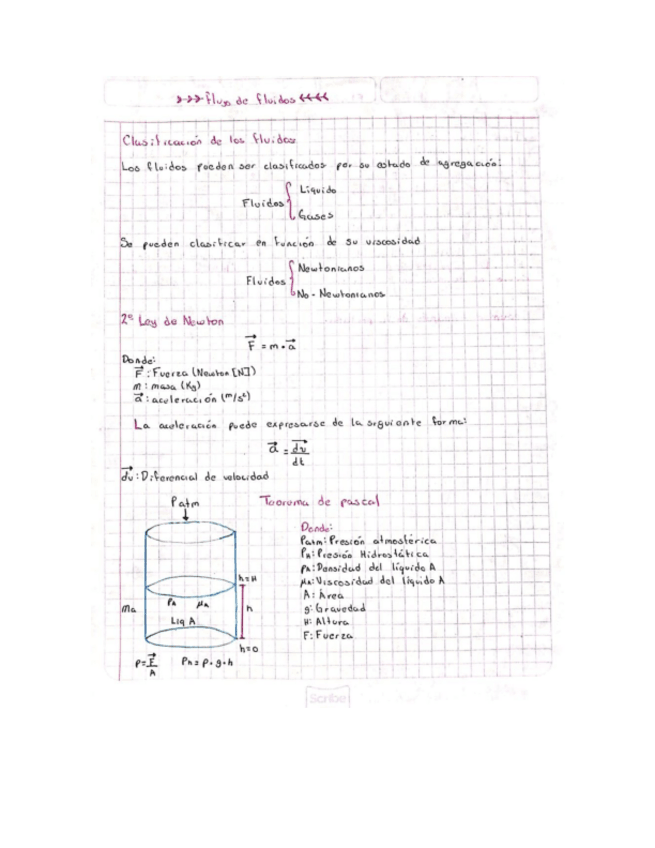 >>>> Flujo de fluidos <<<<
Clasificación de los fluidos
Los fluidos pueden ser clasificados por su estado de agregación:
Fluidos { Líquido
Gases
Se pueden clasificar en función de su viscosidad
Fluidos { Newtonianos
No - Newtonianos
2ª Ley de Newton
F = m · a
Donde:
F : Fuerza (Newton [N])
m : masa (Kg)
a : aceleración (m/s²)
La aceleración puede expresarse de la siguiente forma:
a = dv
dt
dv : Diferencial de velocidad
Patm
Teorema de pascal
Donde:
Patm: Presión atmosférica
Ph: Presión Hidrostática
ρA: Densidad del líquido A
μA: Viscosidad del líquido A
A: Área
g: Gravedad
H: Altura
F: Fuerza
h=H
ρA μA
Ma
h
Liq A
h=0
P = F
A
Ph = ρ · g · h
Scribe